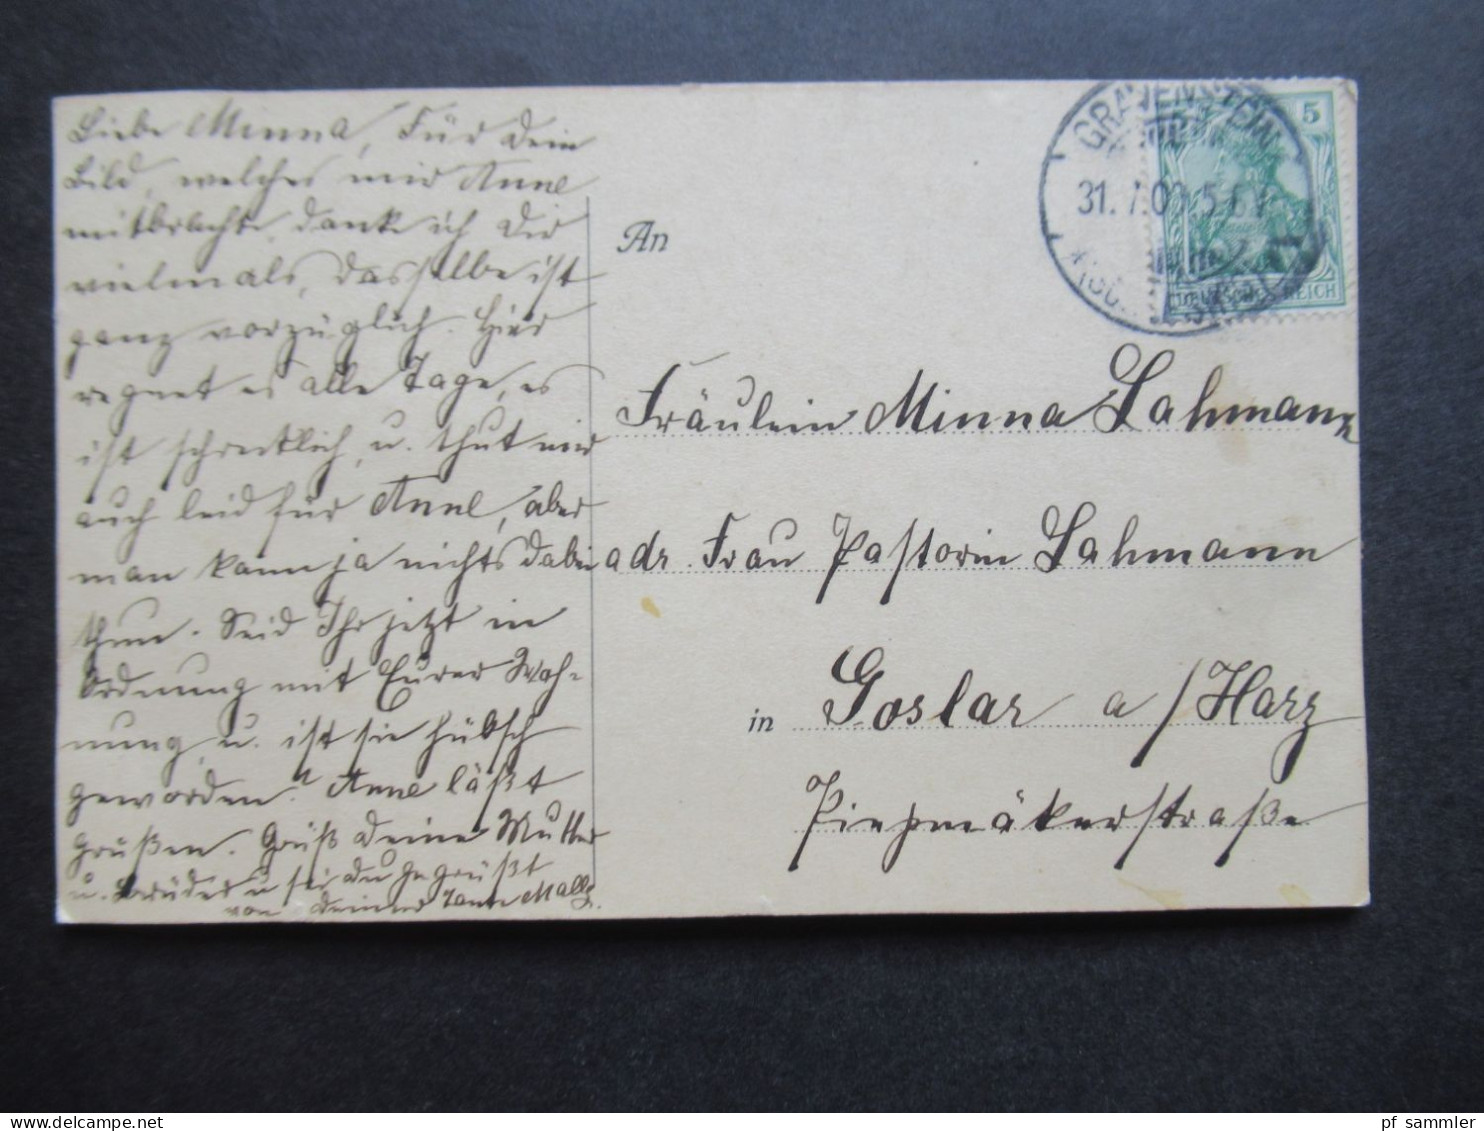 Liebe Minna, Für Dein
Bild, welches mir Anne
mitbrachte, danke ich Dir
vielmals, dasselbe ist
ganz vorzüglich. Hier
regnet es alle Tage, es
ist schrecklich, u. thut mir
auch leid für Anne, aber
man kann ja nichts dabei
thun. Seid Ihr jetzt in
Ordnung mit Eurer Woh-
nung, u. ist sie hübsch
geworden? Anne läßt
grüßen. Grüß Deine Mutter
u. Brüder u sei Du gegrüßt
von Deiner Tante Malle.
GRAVENSTEIN
31. 7. 5
5
DEUTSCHES REICH
An
Fräulein Minna Lahmann
adr. Frau Pastorin Lahmann
in Goslar a/Harz
Piepmäkerstraße
pf_sammler